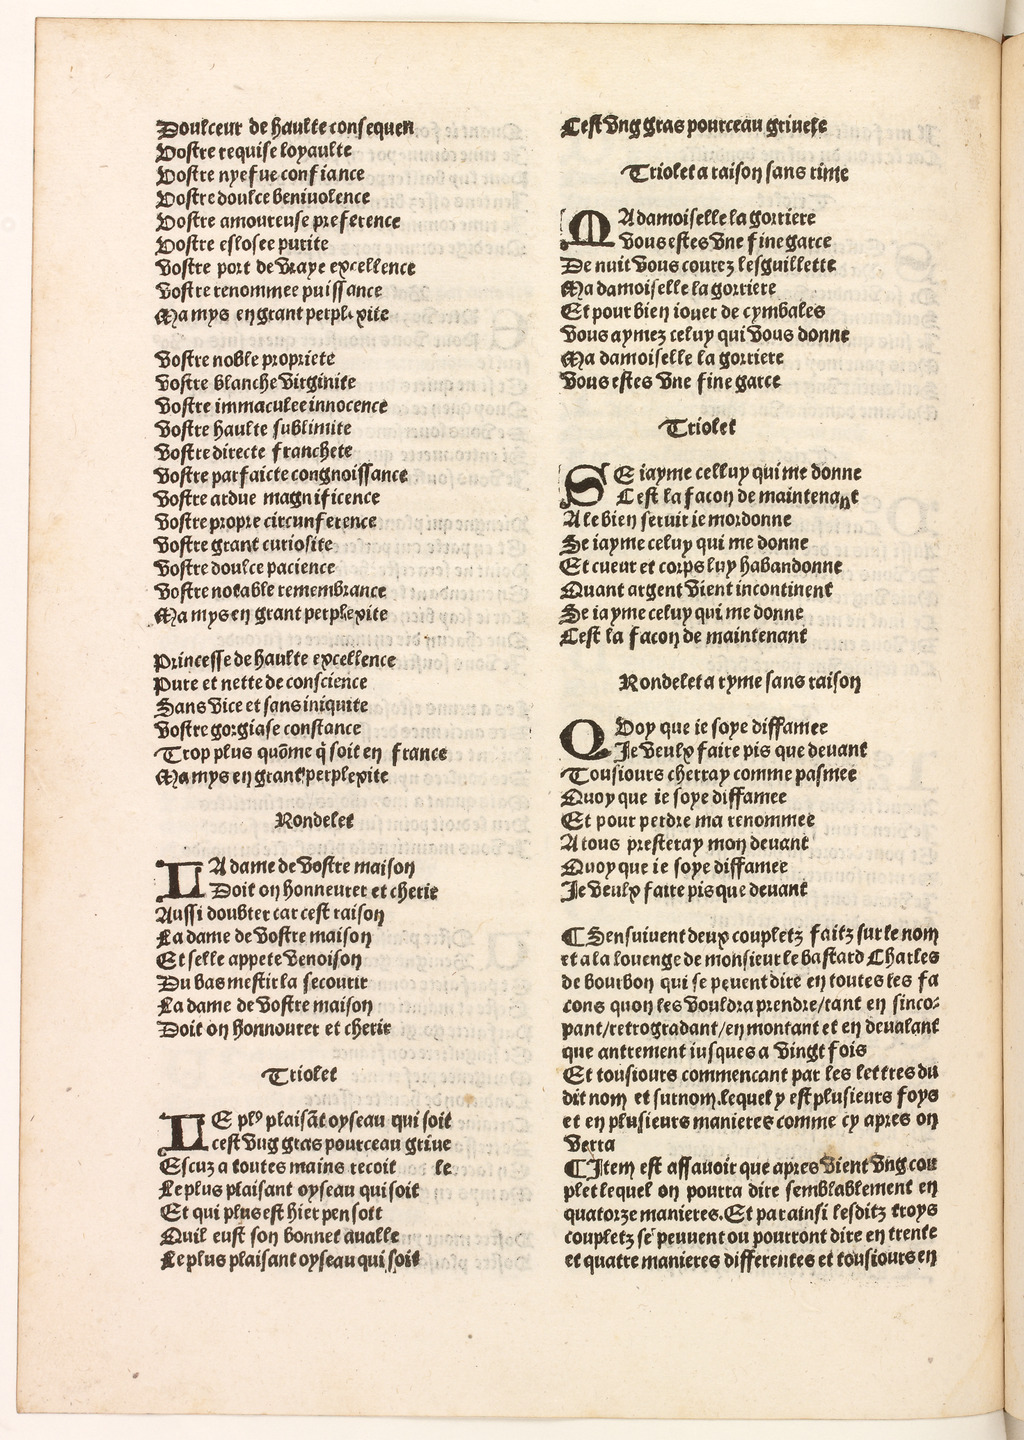 Doulceur de haulte consequen
Vostre requise loyaulte
Vostre nyefue confiance
Vostre doulce beniuolence
Vostre amoureuse preference
Vostre eslosee purite
Vostre port de vraye excellence
Vostre renommee puissance
Ma mys en grant perplexite
Vostre noble propriete
Vostre blanche virginite
Vostre immaculee innocence
Vostre haulte sublimite
Vostre directe franchete
Vostre parfaicte congnoissance
Vostre ardue magnificence
Vostre propre circunference
Vostre grant curiosite
Vostre doulce pacience
Vostre notable remembrance
Ma mys en grant perplexite
Princesse de haulte excellence
Pure et nette de conscience
Sans vice et sans iniquite
Vostre gorgiase constance
Trop plus quõme q̃ soit en france
Ma mys en grant perplexite
Rondelet
LA dame de vostre maison
Doit on honneurer et cherir
Aussi doubter car cest raison
La dame de vostre maison
Et selle appete venoison
Du bas mestir la secourir
La dame de vostre maison
Doit on honnourer et cherir
Triolet
LE plꝰ plaisãt oyseau qui soit
cest vug gras pourceau griue
Escuz a toutes mains recoit le
Le plus plaisant oyseau qui soit
Et qui plus est hier pensoit
Quil eust son bonnet aualle
Le plus plaisant oyseau qui soit
Cest vng gras pourceau griuele
Triolet a raison sans rime
MA damoiselle la gorriere
Vous estes vne fine garce
De nuit vous courez lesguillette
Ma damoiselle la gorriere
Et pour bien iouer de cymbales
Vous aymez celuy qui vous donne
Ma damoiselle la gorriere
Vous estes vne fine garce
Triolet
SE iayme celluy qui me donne
Cest la facon de maintenant
A le bien seruir ie mordonne
Se iayme celuy qui me donne
Et cueur et corps luy habandonne
Quant argent vient incontinent
Se iayme celuy qui me donne
Cest la facon de maintenant
Rondelet a ryme sans raison
QVoy que ie soye diffamee
Je veulx faire pis que deuant
Tousiours cherray comme pasmee
Quoy que ie soye diffamee
Et pour perdre ma renommee
A tous presteray mon deuant
Quoy que ie soye diffamee
Je veulx faire pis que deuant
¶ Sensuiuent deux coupletz faitz sur le nom
et a la louenge de monsieur le bastard Charles
de bourbon qui se peuent dire en toutes les fa
cons quon les vouldra prendre/tant en sinco⸗
pant/retrogradant/en montant et en deualant
que antrement iusques a vingt fois
Et tousiours commencant par les lettres du
dit nom et surnom.lequel y est plusieurs foys
et en plusieurs manieres comme cy apres on
verra
¶ Item est assauoir que apres vient vng cou
plet lequel on pourra dire semblablement en
quatorze manieres.Et par ainsi lesditz troys
coupletz se peuuent ou pourront dire en trente
et quatre manieres differentes et tousiours en